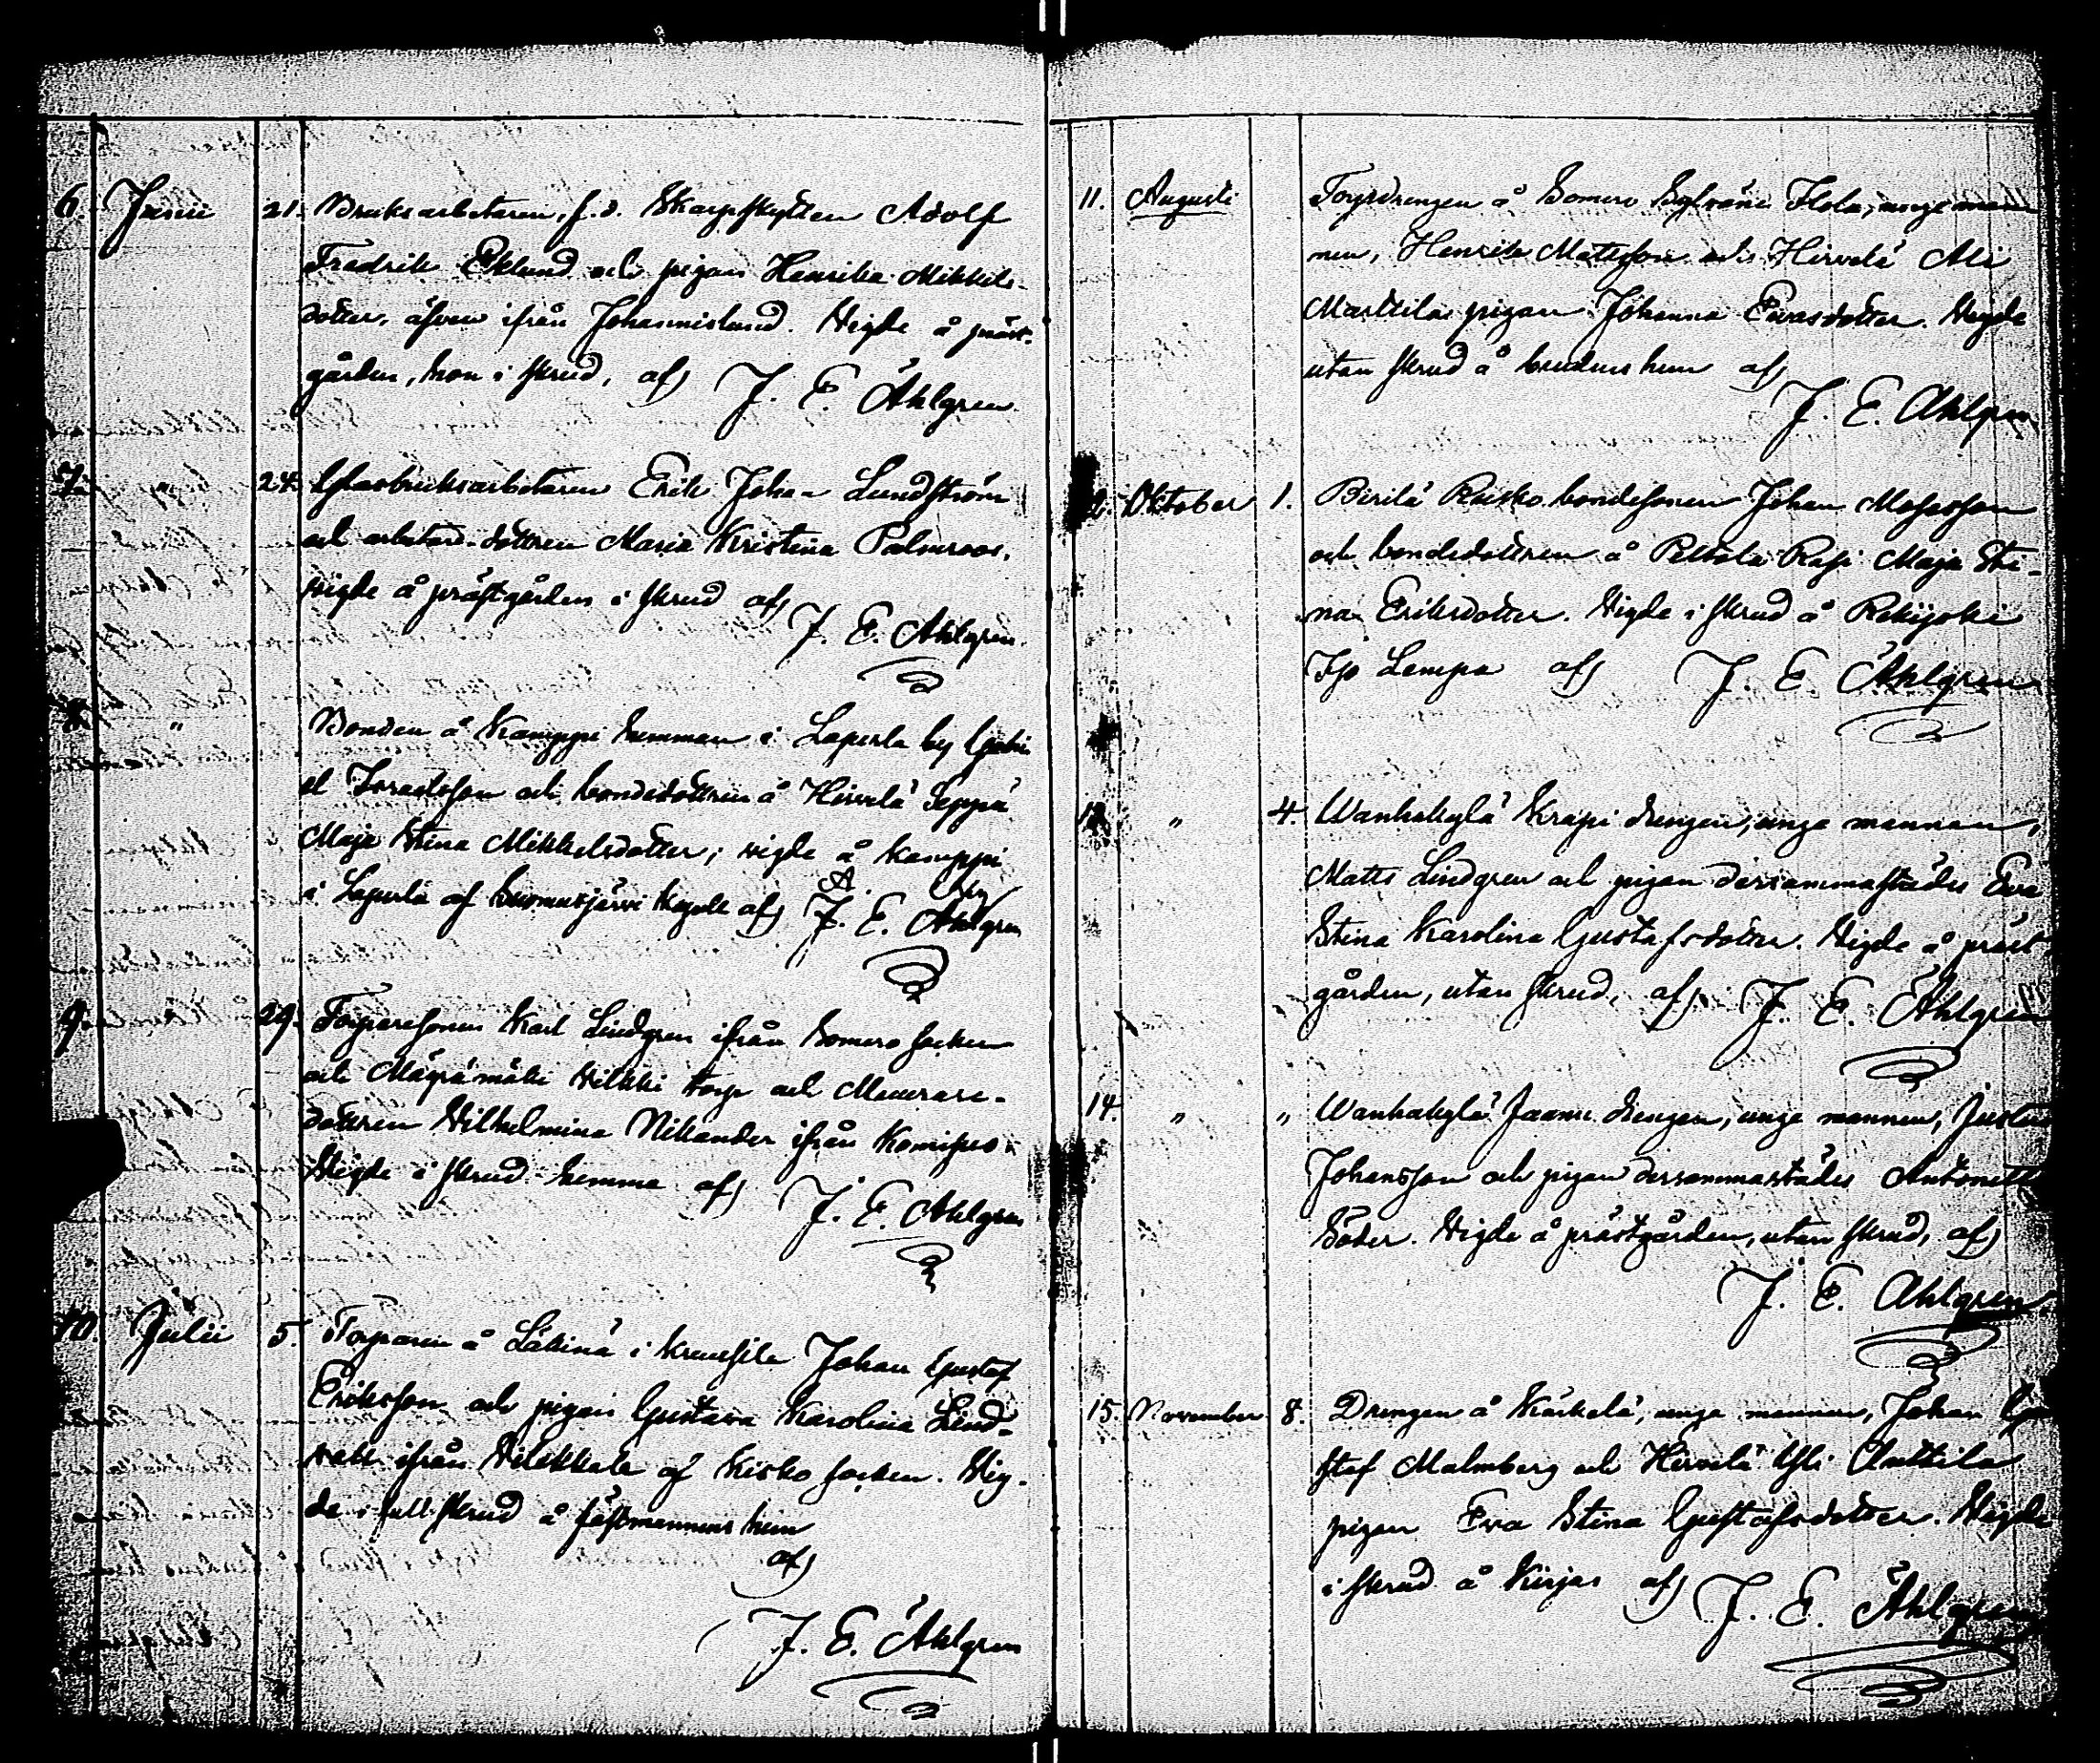 6. Junii 21. Bruksarbetaren, f.d. Skarpskytten Adolf
Fredrik Eklund och pigan Henrika Mikkels-
dotter, äfven ifrån Johannislund. Vigde å präst-
gården, hon i skrud, af J. E. Åhlgren.
7. " 24. Glasbruksarbetaren Erik Johan Lundström
och arbetare-dottren Maria Kristina Palmroos,
vigde å prästgården i skrud af
J. E. Ahlgren.
8. " Bonden å Kamppi hemman i Laperla by Gabri-
el Israelsson och bondedottren å Hirvelä Seppä
Maja Stina Mikkelsdotter; vigde å Kamppi
i Laperla af Suomusjärvi Kapell af J. E. Ahlgren
9. 29. Torparesonen Karl Lindgren ifrån Somero socken
och Mägrämäki Vilkki torp och Murare-
dottren Vilhelmina Nikander ifrån
Vigde i skrud hemma af J. E. Ahlgren
10. Julii 5. Torparen å Läkinä i Johan Gustaf
Eriksson och pigan Gustava Karolina Lind-
vall ifrån af Kisko socken. Vig-
de i full skrud å fästmannens hem
af
J. E. Åhlgren
11. Augusti Torpdrengen å Somero Sylvänä unge man-
nen, Henrik Mattsson och Hirvelä Ali
Marttila pigan Johanna Evasdotter. Vigde
utan skrud å brudens hem af
J. E. Ahlgren
12. Oktober 1. Pirilä Raisko bondesonen Johan Mosesson
och bondedottren å Peltola Rasi Maja Sti-
na Eriksdotter. Vigde i skrud å Rekijoki
Iso Lempa af J. E. Åhlgren
13. " 4. Wanhakylä Krapi drengen, unge mannen,
Matts Lindgren och pigan dersammastädes Eva
Stina Karolina Gustafsdotter. Vigde å präst-
gården, utan skrud, af J. E. Åhlgren
14. " " Wanhakylä Jaanu drengen, unge mannen,
Johansson och pigan dersammastädes Antonett
Söder. Vigde å prästgården, utan skrud, af
J. E. Ahlgren.
15. November 8. Drengen å Kärkelä, unge mannen, Johan Gu-
staf Malmberg och Hirvelä Yli Anttila
pigan Eva Stina Gustafsdotter. Vigde
i skrud å Kirjas af J. E. Åhlgren